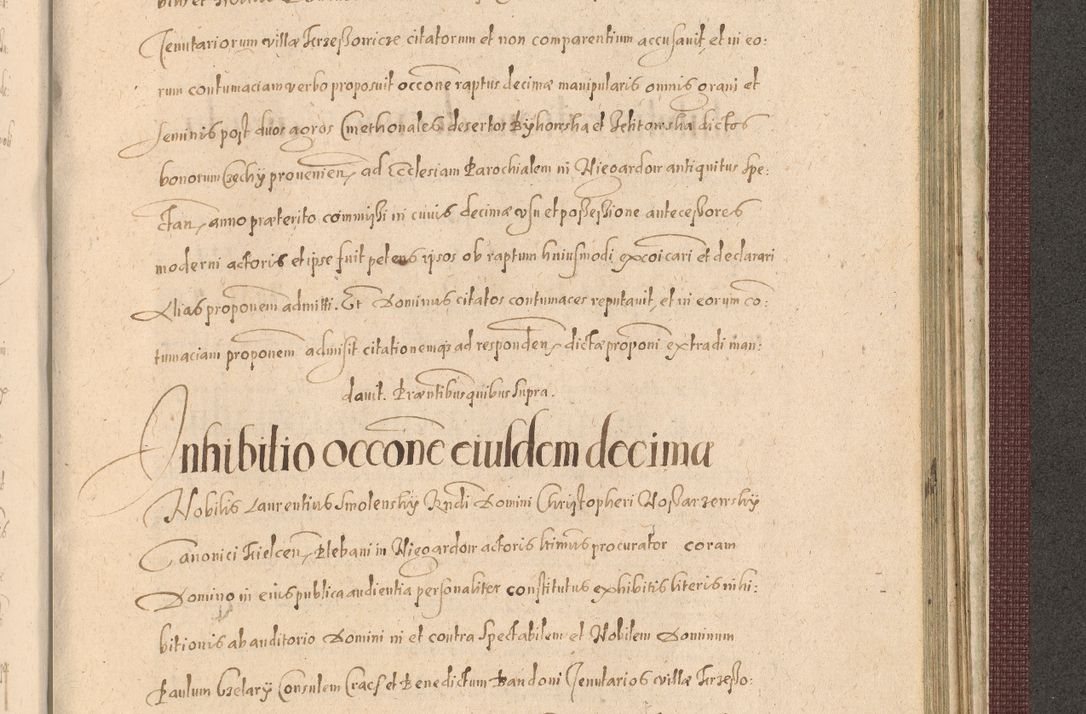 Tenutariorum villæ Krzessowicze citatorum et non comparentium accusavit, et in eo:
rum contumaciam verbo proposuit occōne raptus decimæ manipularis omnis grani et
seminis post duos agros Cmethonales desertos Bykowska et Ichtowska dictos
bonorum Czechy provenien, ad Ecclesiam Parochialem in Niegardow antiquitus spe:
ctan, anno præterito commissi in cuius decimæ usu et possessione antecessores
moderni actoris et ipse fuit petens ipsos ob raptum huiusmodi excōicari et declarari
Alias proponem admitti. Et Dominus citatos contumaces reputavit, et in eorum co:
tumaciam proponem admisit citationemqs ad responden, dictæ proponi extradi man:
davit. Præntibus quibus supra.
Inhibitio occōne eiusdem decimæ
Nobilis Laurentius Smolensky Rndi Domini Christopheri Nossarzewsky
Canonici Kielcen, Plebani in Niegardow actoris ltimus procurator coram
Domino in eius publica audientia personaliter constitutus exhibitis literis inhi:
bitionis ab auditorio Domini in et contra Spectabilem et Nobilem Dominum
Paulum Czelary Consulem Cracs et Benedictum Bandoni Tenutarios villæ Krzesso: